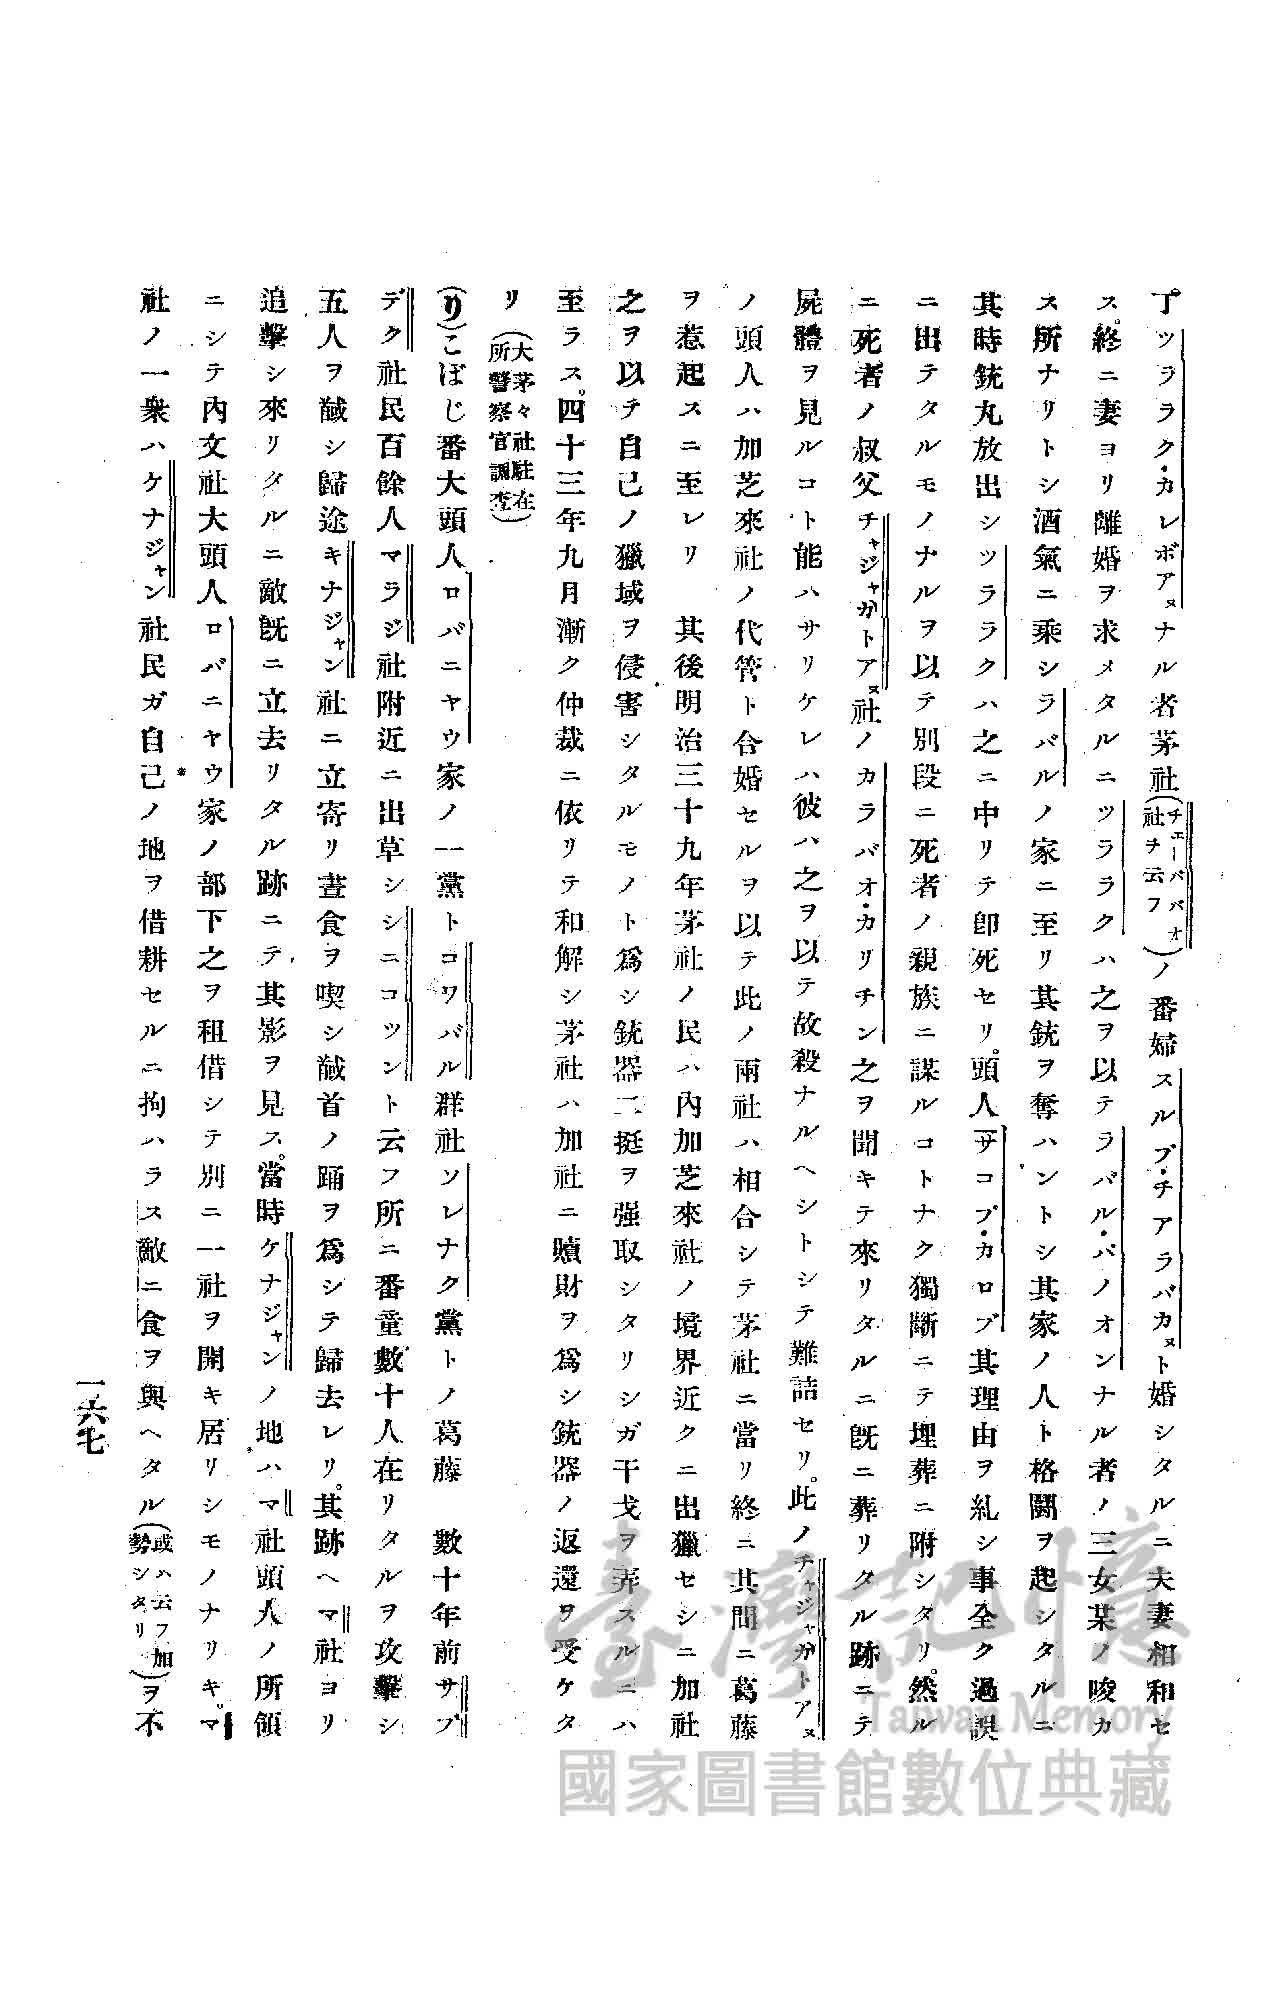 丁。ツララク・カレボアヌナル者茅社(チエーババオ社ヲ云フ)ノ番婦スルブ・チアラバカヌト婚シタルニ夫妻相和セ
ス。終ニ妻ヨリ離婚ヲ求メタルニツララクハ之ヲ以テラバル・バノオンナル者ノ三女某ノ唆カ
ス所ナリトシ酒氣ニ乘シラバルノ家ニ至リ其銃ヲ奪ハントシ其家ノ人ト格鬪ヲ起シタルニ
其時銃丸放出シツララクハ之ニ中リテ卽死セリ。頭人サコブ・カロブ其理由ヲ糺シ事全ク過誤
ニ出テタルモノナルヲ以テ別段ニ死者ノ親族ニ謀ルコトナク獨斷ニテ埋葬ニ附シタリ。然ル
ニ死者ノ叔父チャジャカトアヌ社ノカラバオ・カリチン之ヲ聞キテ來リタルニ旣ニ葬リタル跡ニテ
屍體ヲ見ルコト能ハサリケレハ彼ハ之ヲ以テ故殺ナルヘシトシテ難詰セリ。此ノチャジャカトアヌ
ノ頭人ハ加芝來社ノ代管ト合婚セルヲ以テ此ノ兩社ハ相合シテ茅社ニ當リ終ニ其間ニ葛藤
ヲ惹起スニ至レリ 其後明治三十九年茅社ノ民ハ內加芝來社ノ境界近クニ出獵セシニ加社
之ヲ以テ自己ノ獵域ヲ侵害シタルモノト爲シ銃器二挺ヲ强取シタリシガ干戈ヲ弄スルニハ
至ラス。四十三年九月漸ク仲裁ニ依リテ和解シ茅社ハ加社ニ贖財ヲ爲シ銃器ノ返還ヲ受ケタ
リ(大茅々社駐在所警察官調查)
(り)こぼじ番大頭人ロバニヤウ家ノ一黨トコワバル群社ソレナク黨トノ葛藤 數十年前サブ
デク社民百餘人マラジ社附近ニ出草シシニコツント云フ所ニ番童數十人在リタルヲ攻擊シ
五人ヲ馘シ歸途キナジャン社ニ立寄リ晝食ヲ喫シ馘首ノ踊ヲ爲シテ歸去レリ。其跡ヘマ社ヨリ
追擊シ來リタルニ敵旣ニ立去リタル跡ニテ其影ヲ見ス。當時ケナジャンノ地ハマ社頭人ノ所領
ニシテ內文社大頭人ロバニヤウ家ノ部下之ヲ租借シテ別ニ一社ヲ開キ居リシモノナリキ。マ
社ノ一衆ハケナジャン社民ガ自己ノ地ヲ借耕セルニ拘ハラス敵ニ食ヲ與ヘタル(或ハ云フ加勢シタリ)ヲ不
一六七
臺灣記憶
Taiwan Memory
國家圖書館數位典藏